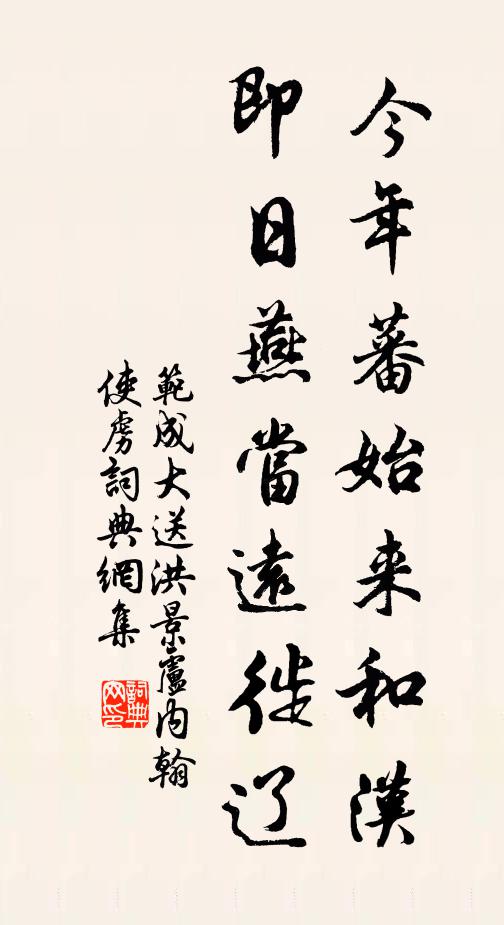 今年蕃始来和漢
即日燕當遠徙辽
範成大送洪景盧内翰
使虜詞典網集
詞典
网印